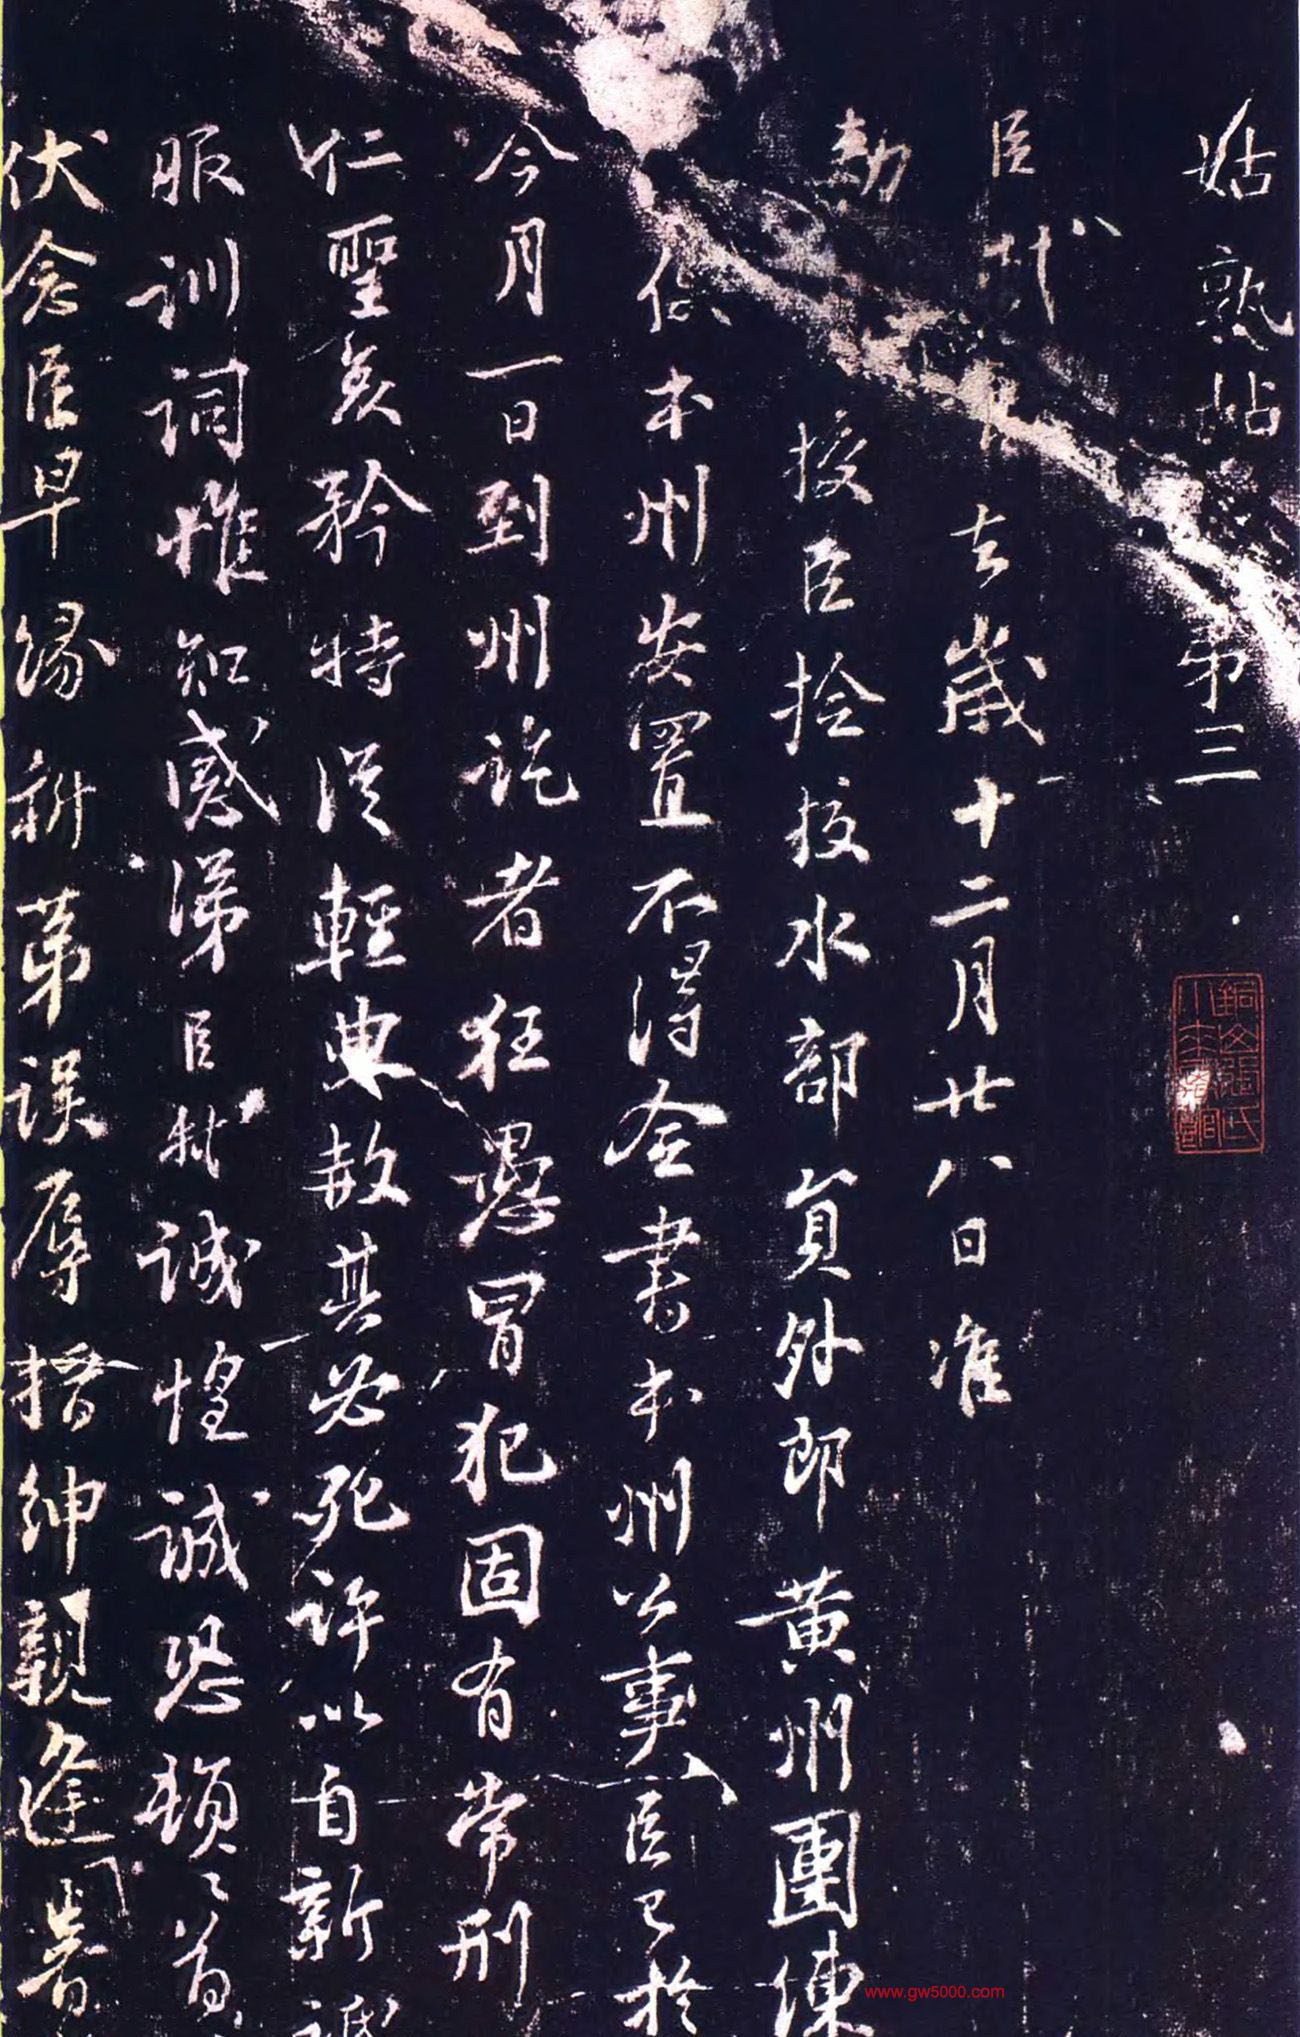 姑熟帖 第三
臣軾言去歲十二月廿八日准
勑
授臣撿挍水部貟外郎黄州團練
使本州安置不得佥書本州公事臣已於
今月一日到州訖者狂愚冒犯固有常刑
仁聖矜特從輕典赦其必死許以自新祗
服訓詞惟知感涕臣軾誠惶誠恐頓〻首〻
伏念臣早縁科苐誤辱搢紳親逢
www.gw5000.com